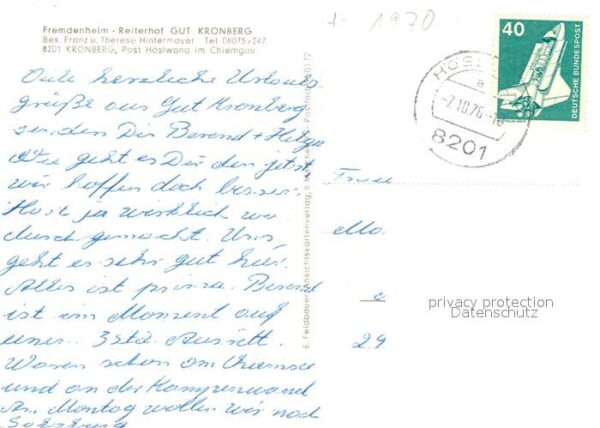 +- 1970
Fremdenheim - Reiterhof GUT KRONBERG
Bes. Franz u. Therese Hintermayer Tel 08075/247
8201 KRONBERG, Post Höslwang im Chiemgau
40
DEUTSCHE BUNDESPOST
-7.10.76-
8201
Viele herzliche Urlaubs
grüße aus Gut Kronberg
senden Dir Berend + Helga
Wie geht es Dir denn jetzt
wir hoffen doch besser.
Hast ja wirklich was
durch gemacht. Uns
geht es sehr gut hier.
Alles ist prima. Berend
ist im Moment auf
einen 3 std. Ausritt.
Waren schon am Chiemsee
und an der Kampenwand
Am Montag wollen wir nach
Salzburg
E. Feldbauer, Ansichtskartenverlag, 8 München
Frau
Mo.
e
29
privacy protection
Datenschutz